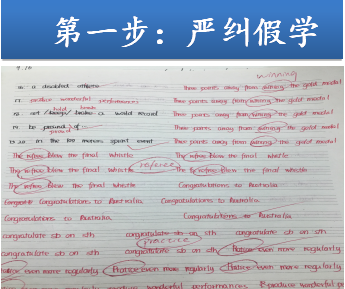 第一步：严纠假学
9.16
winning
16. a disabled athlete Three points away from winning the gold medal
17. produce wonderful performances Three points away from winning the gold medal
hold break
18. set / / a world record Three points away from winning the gold medal
19. be pound of Three points away from winning the gold medal
proud
in the 100 meters event Three points away from winning the gold medal
The refree blew the final whistle The refree blew the final whistle
The refree blew the final whistle referee The refree blew the final whistle
The refree blew the final whistle Congratulations to Australia
Congratulations to Australia Congratulations to Australia
Congratulations to Australia Congratulations to Australia
congratulate sb on sth congratulate sb on sth congratulate sb on sth
practice
congratulate sb on sth congratulate sb on sth Pratice even more regularly
Pratice even more regularly Pratice even more regularly Pratice even more regularly
produce wonderful performances Produce wonderful